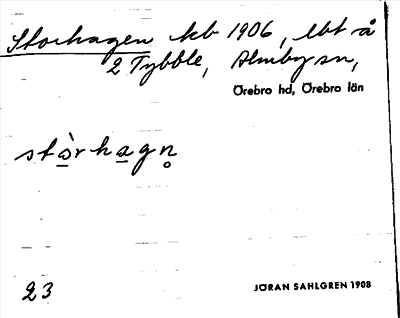 Storhagen kb 1906, lbt å
2 Tybble, Almby sn,
Örebro hd, Örebro län
stòrhagn̥
23
JÖRAN SAHLGREN 1908